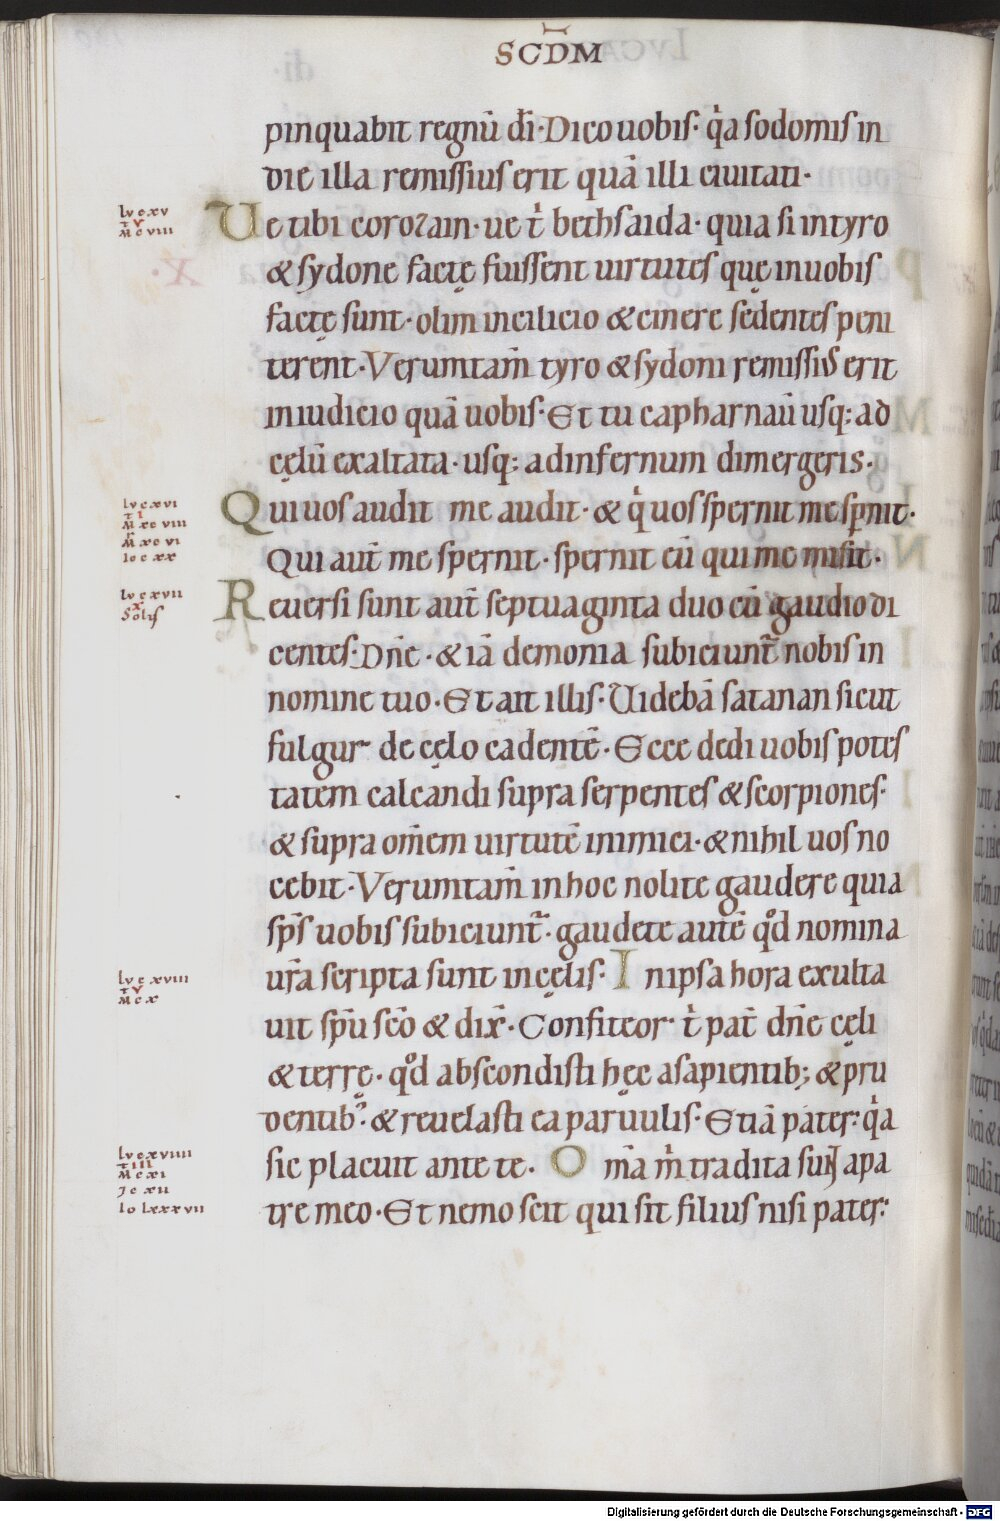 SCDM
pinquabit regnū dī· Dico uobis· qͥa sodomis in
die illa remissius erit quā illi ciuitati·
Ue tibi corozain· ue t̍ bethsaida· quia si in tyro
& sydone factę fuissent uirtutes quę in uobis
factę sunt· olim in cilicio & cinere sedentes peni
terent· Verumtam̄ tyro & sydoni remissiꝰ erit
in iudicio quā uobis· Et tu capharnaū usq; ad
cęlū exaltata· usq; ad infernum dimergeris·
Qui uos audit me audit· & qͥ uos spernit me spnit·
Qui aut̄ me spernit· spernit eū qui me misit·
Reuersi sunt aut̄ septuaginta duo cū gaudio di
centes· Dn̄e· & iā demonia subiciunt᷑ nobis in
nomine tuo· Et ait illis· Uidebā satanan sicut
fulgur de cęlo cadentē· Ecce dedi uobis potes
tatem calcandi supra serpentes & scorpiones·
& supra om̄em uirtutē inimici· & nihil uos no
cebit· Verumtam̄ in hoc nolite gaudere quia
sps̄ uobis subiciunt᷑· gaudete autē qd̊ nomina
ur̄a scripta sunt in cęlis· In ipsa hora exulta
uit spū scō & dix̄· Confiteor t̍ pat̄ dn̄e cęli
& terrę· qd̊ abscondisti hęc a sapientib; & pru
dentib᷒· & reuelasti ea paruulis· Etiā pater· qͥa
sic placuit ante te· Om̄a m̍ tradita sunt a pa
tre meo· Et nemo scit qui sit filius nisi pater·
lv c xv
t v
m c viii
lv c xvi
t i
m xc viii
m xc vi
io c xx
lv c xvii
x
Solus
lv c xviii
t v
m c x
lv c xviiii
t iii
m c xi
i c xii
io lxxxvii
Digitalisierung gefördert durch die Deutsche Forschungsgemeinschaft - DFG